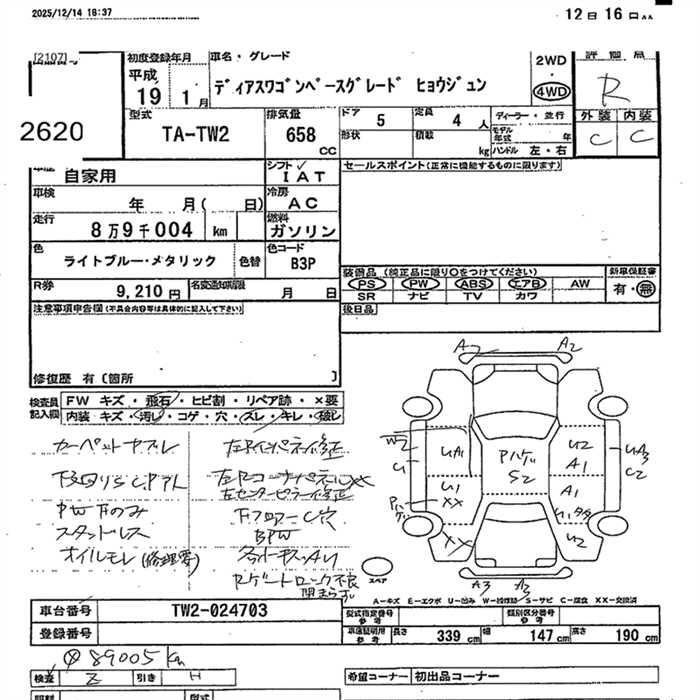 2025/12/14 16:37
12日 16日
[2107]
初度登録年月 車名・グレード
平成
19 1月 ディアスワゴンベースグレード ヒョウジュン
2WD
4WD
評価点
R
2620
型式 TA-TW2
排気量 658 CC
ドア 5
定員 4人
ディーラー・並行
モデル年式 年
形状 積載 kg
ハンドル 左・右
外装 内装
C C
自家用
シフト IAT
セールスポイント(正常に機能するものに限ります)
車検 年 月( 日)
冷房 AC
走行 8万9千004 km
燃料 ガソリン
色 ライトブルー・メタリック 色替
色コード B3P
装備品(純正品に限り○をつけてください)
新車保証書
PS PW ABS エアB AW 有・無
SR ナビ TV カワ
R券 9,210円
名変通知期限 月 日
後日品
注意事項申告欄(不具合内容等は具体的に記入して下さい)
修復歴 有〔箇所 〕
検査員記入欄
FW キズ・飛石・ヒビ割・リペア跡・×要
内装 キズ・汚れ・コゲ・穴・スレ・キレ・破れ
カーペットヤブレ
PW下のみ
スタッドレス
オイルモレ(修理要)
左センターピラー修正
下フロアーC穴
BPW
Rゲートロック不良
閉まらず
A2 A2
W2
U1
UA1
U1
XX
XX
Pハゲ
Pハゲ
S2
U2
A1
A1
U2
UA3
C2
A3 A3
スペア
A-キズ E-エクボ U-凹み W-板修跡 S-サビ C-腐食 XX-交換済
車台番号 TW2-024703
登録番号
型式指定番号 参考
類別区分番号 参考
車庫証明用 参考 長さ 339 cm 幅 147 cm 高さ 190 cm
89005 km
検査 Z 引き H
希望コーナー 初出品コーナー
型式